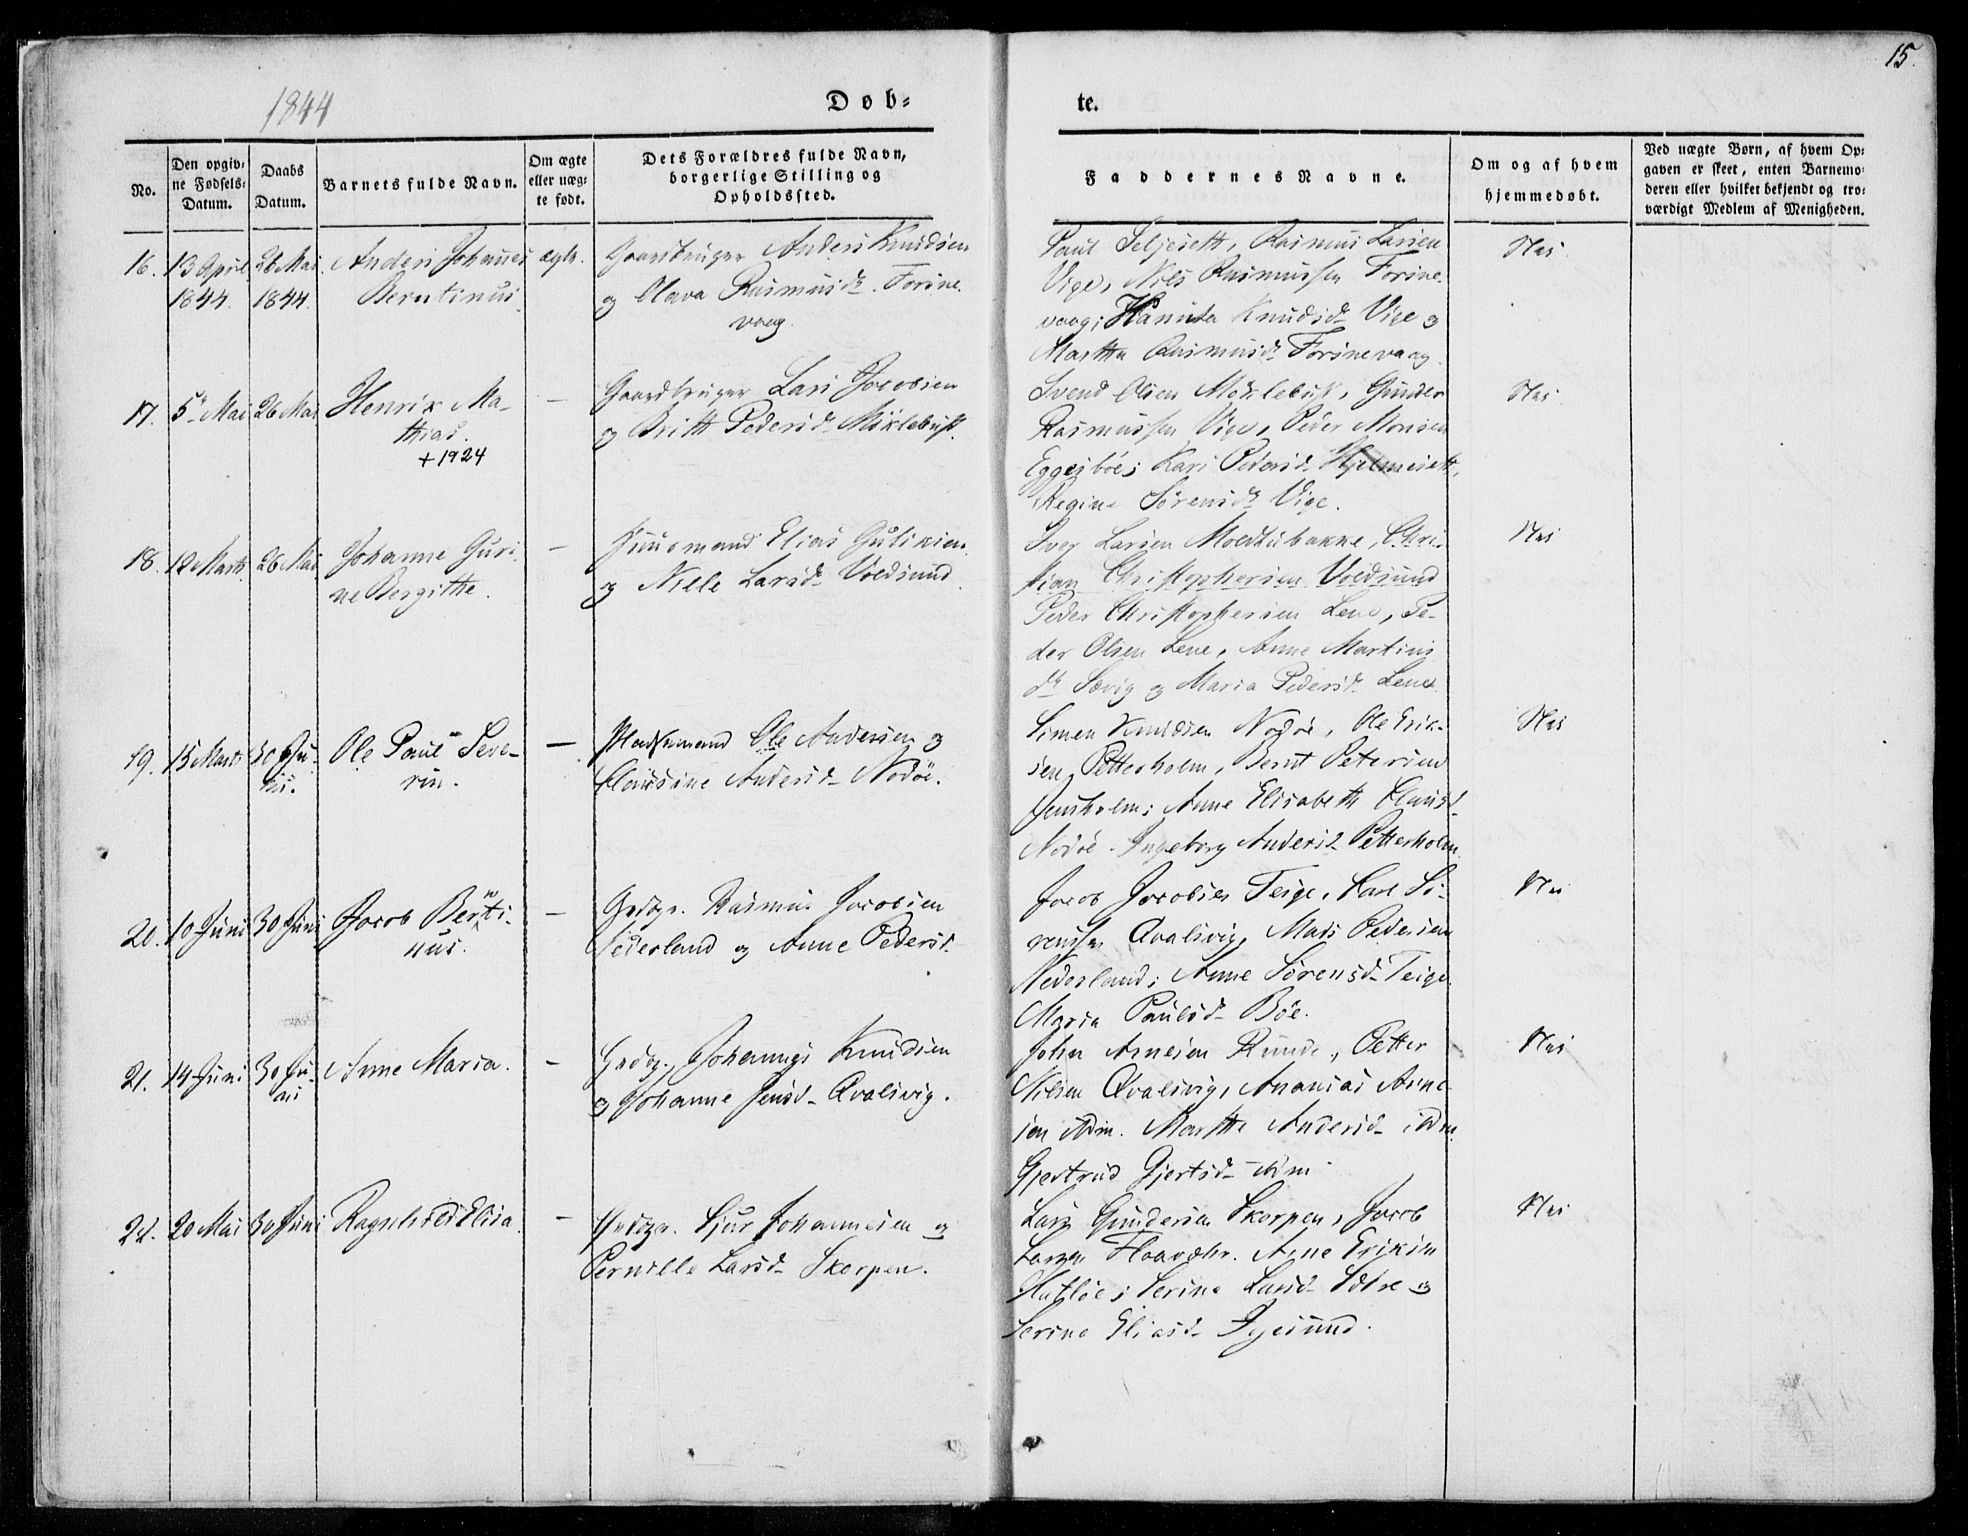 15.
1844
Døb-
te.
No.
Den opgiv-
ne Fødsels-
Datum.
Daabs
Datum.
Barnets fulde Navn.
Om ægte
eller uæg-
te født.
Dets Forældres fulde Navn,
borgerlige Stilling og
Opholdssted.
Faddernes Navne.
Om og af hvem
hjemmedøbt.
Ved uægte Børn, af hvem Op-
gaven er skeet, enten Barnemo-
deren eller hvilket bekjendt og tro-
værdigt Medlem af Menigheden.
16.
13 April
1844.
26 Mai
1844.
Anders Johannes
Berntinus.
ægte.
Gaardbruger Anders Knudsen
og Olava Rasmusd. Torine-
vaag.
Paul Seljesett, Rasmus Larsen
Vige, Nils Rasmussen Forine-
vaag; Knudsd. Vige og
Marthe Rasmusd. Forinevaag.
17.
5 Mai
26 Mai
Henrik Ma-
thias.
+ 1924
—
Gaardbruger Lars Jacobsen
og Britt Pedersd. Miklebust.
Svend Olsen Möklebust, Gunder
Rasmussen Vige, Peder Monsen
Eggesböe; Kari Pedersd. Hjelmesett,
Regine Sörensd. Vige.
18.
12 Marts
26 Mai
Johanne Guri-
ne Bergitthe.
—
Huusmand Elias Guliksen
og Nille Larsd. Voldsund.
Iver Larsen Moldtubakke, Chri-
stian Christophersen Voldsund
Peder Christophersen Lene, Pe-
der Olsen Lene, Anne Martins
d. Sævig og Maria Pedersd. Lene.
19.
15 Marts
30 Ju-
ni.
Ole Paul Seve-
rin.
—
Pladsmand Ole Andersen og
Clausine Andersd. Nodöe.
Simen Knudsen Nodöe, Ole Erik-
sen Petterholm, Bernt Petersen
Jensholm; Anne Elisabeth Clausd.
Nodöe. Ingeborg Andersd. Petterholm.
20.
10 Juni
30 Juni
Jacob Bernti-
nus.
—
Grdbgr. Rasmus Jacobsen
Nederland og Anne Pedersd.
Jacob Jacobsen Teige, Carl Sö-
rensen Qvalsvig, Mads Pedersen
Nederland; Anne Sörensd. Teige.
Maria Paulsd. Böe.
21.
14 Juni
30 Ju-
ni
Anne Maria.
—
Grdbg. Johannes Knudsen
og Johanne Jensd. Qvalsvig.
John Arnesen Runde, Petter
Nilsen Qvalsvig, Ananias Arne-
sen Adm. Marthe Andersd. ibdm.
Gjertrud Gjertsd. ibdm.
22.
20 Mai
30 Juni
Ragnhild Elisa.
—
Grdbgr. Sjur Johannesen og
Pernille Larsd. Skorpen.
Lars Gundersen Skorpen, Jacob
Larsen Flaavær. Arne Eriksen
Hatlöe; Serine Larsd. Sætre og
Serine Eliasd. Igesund.